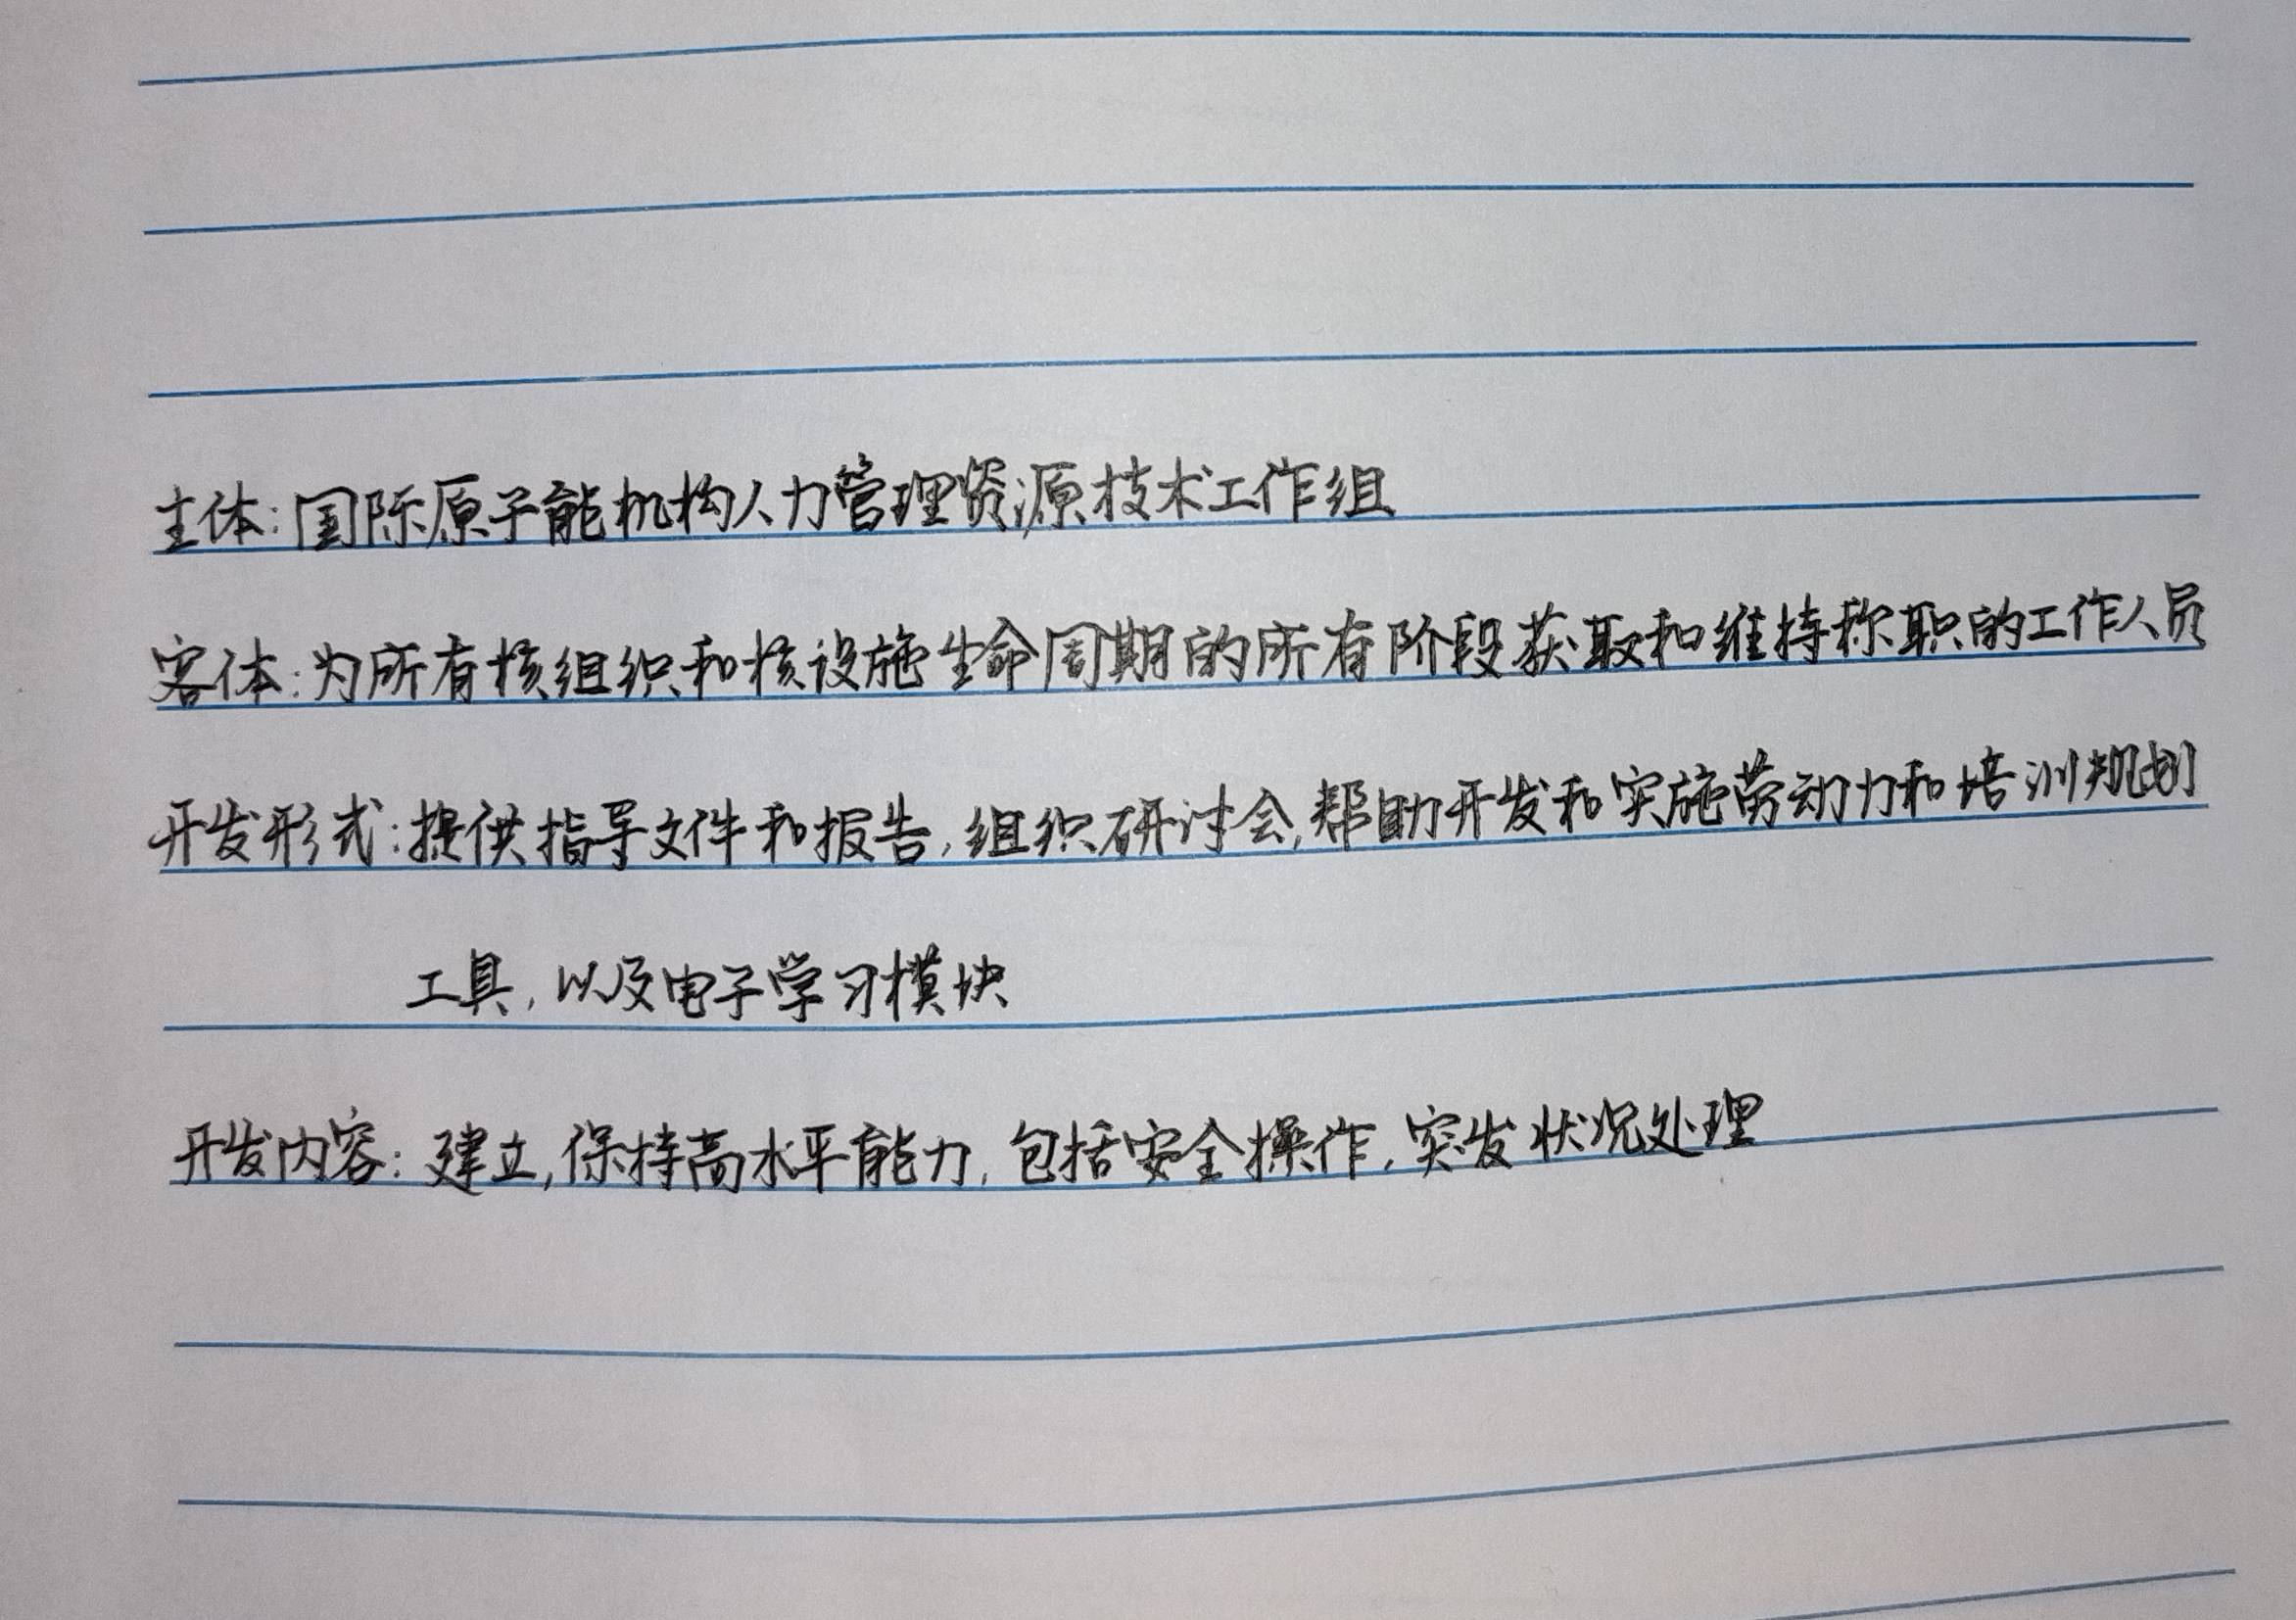 主体:国际原子能机构人力管理资源技术工作组
客体:为所有核组织和核设施生命周期的所有阶段获取和维持称职的工作人员
开发形式:提供指导文件和报告,组织研讨会,帮助开发和实施劳动力和培训规划
工具,以及电子学习模块
开发内容:建立,保持高水平能力,包括安全操作,突发状况处理